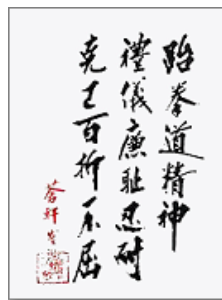 跆拳道精神
禮儀廉耻忍耐
克己百折不屈
蒼軒